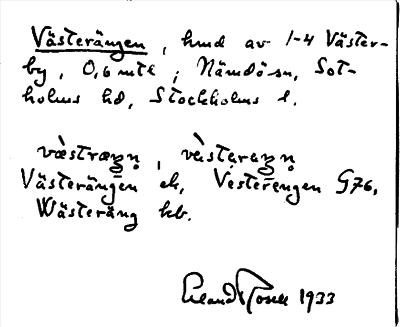 Västerängen, hmd av 1-4 Väster-
by, 0,6 mtl; Nämdö sn, Sot-
holms hd, Stockholms l.
Västerängen ek, Vesterengen G76,
Wästeräng kb.
Erland Rosell 1933